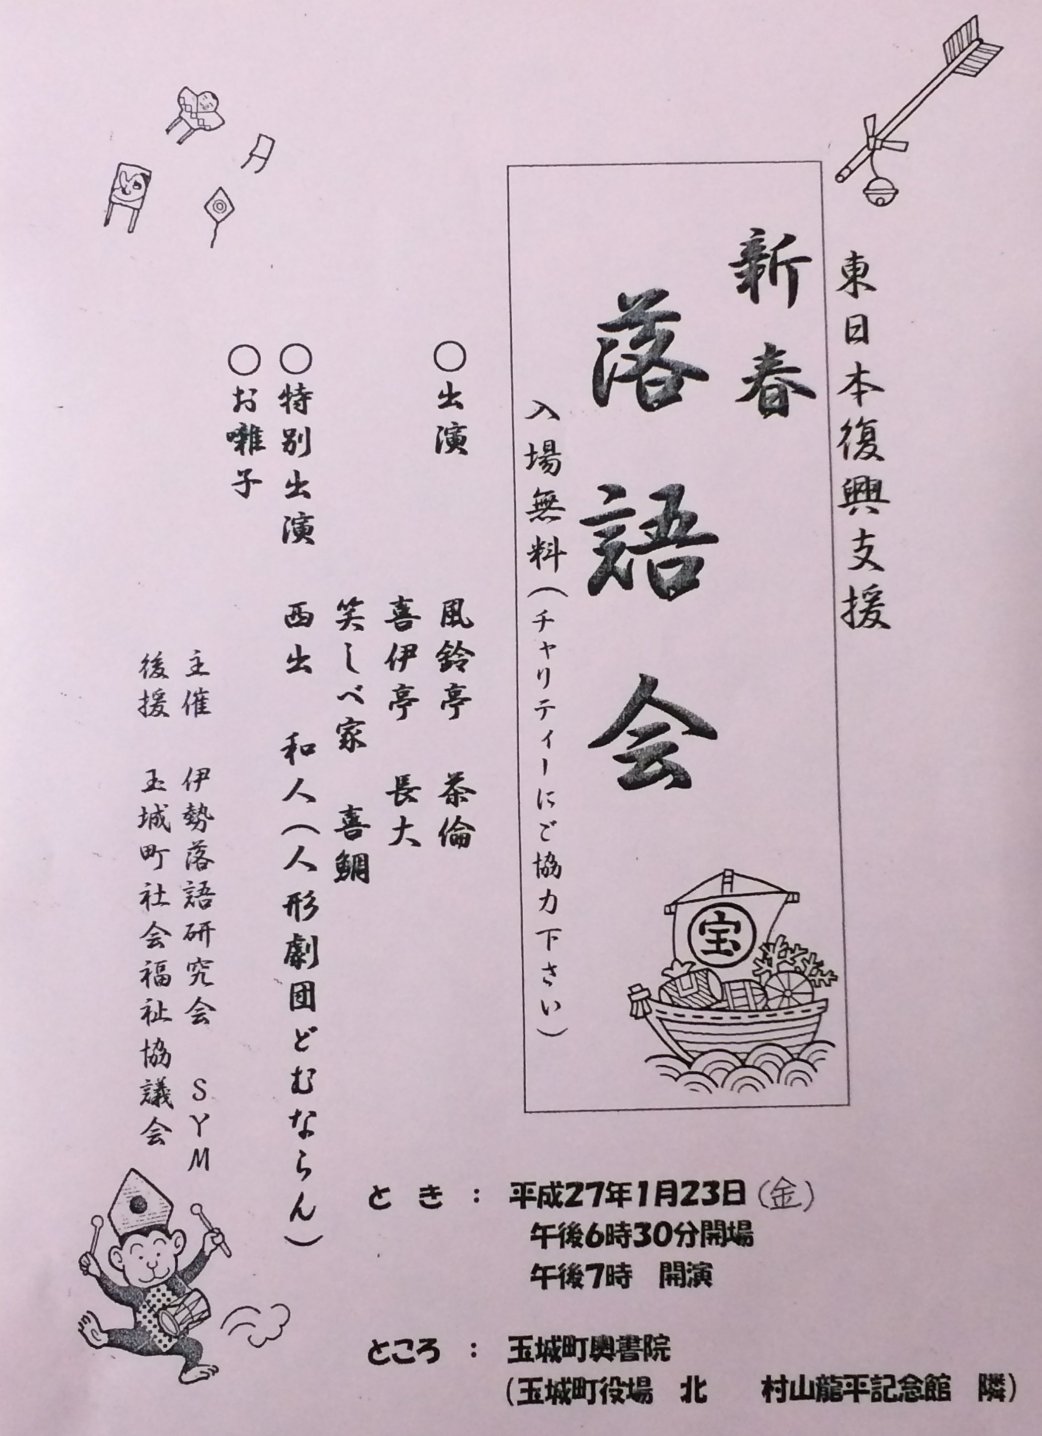 東日本復興支援
新春
落語会
入場無料(チャリティーにご協力下さい)
宝
○出演 風鈴亭 茶倫
喜伊亭 長大
笑しべ家 喜鯛
○特別出演 西出 和人(人形劇団どむならん)
○お囃子
主催 伊勢落語研究会 SYM
後援 玉城町社会福祉協議会
とき : 平成27年1月23日(金)
午後6時30分開場
午後7時 開演
ところ : 玉城町奥書院
(玉城町役場 北 村山龍平記念館 隣)